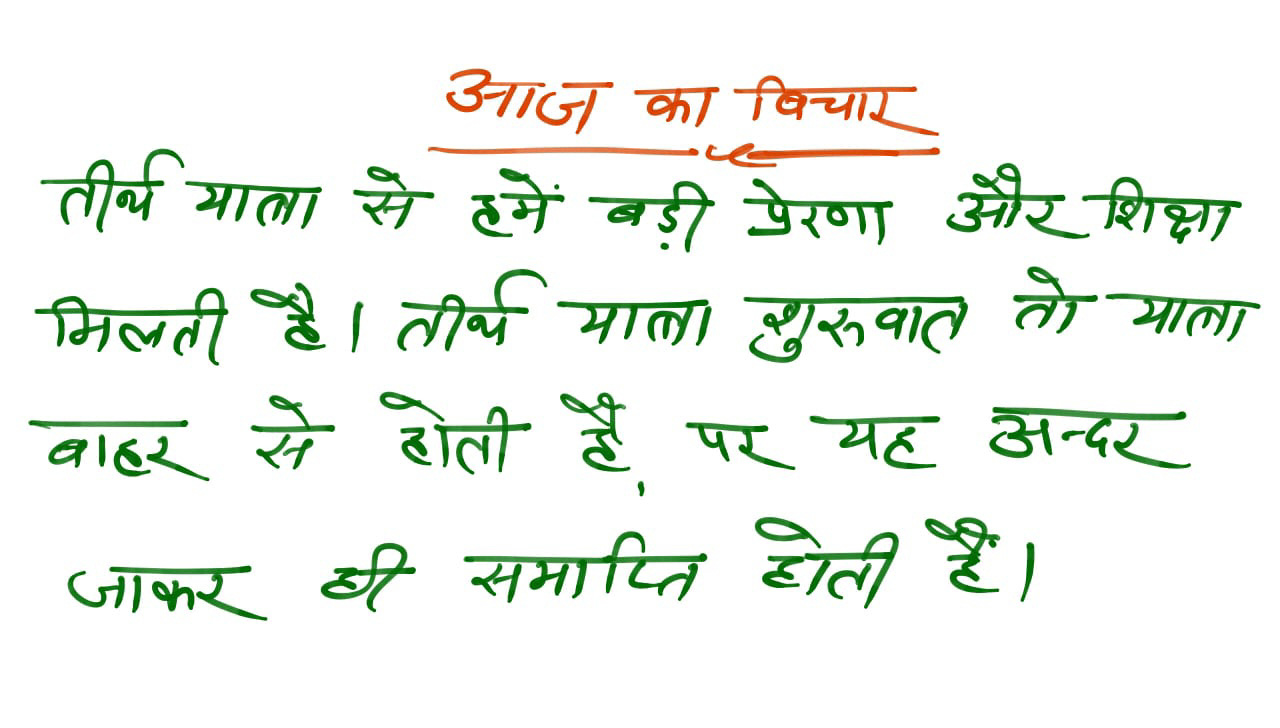 आज का विचार
तीर्थ यात्रा से हमें बड़ी प्रेरणा और शिक्षा
मिलती है। तीर्थ यात्रा शुरुवात तो यात्रा
बाहर से होती है, पर यह अन्दर
जाकर ही समाप्ति होती हैं।